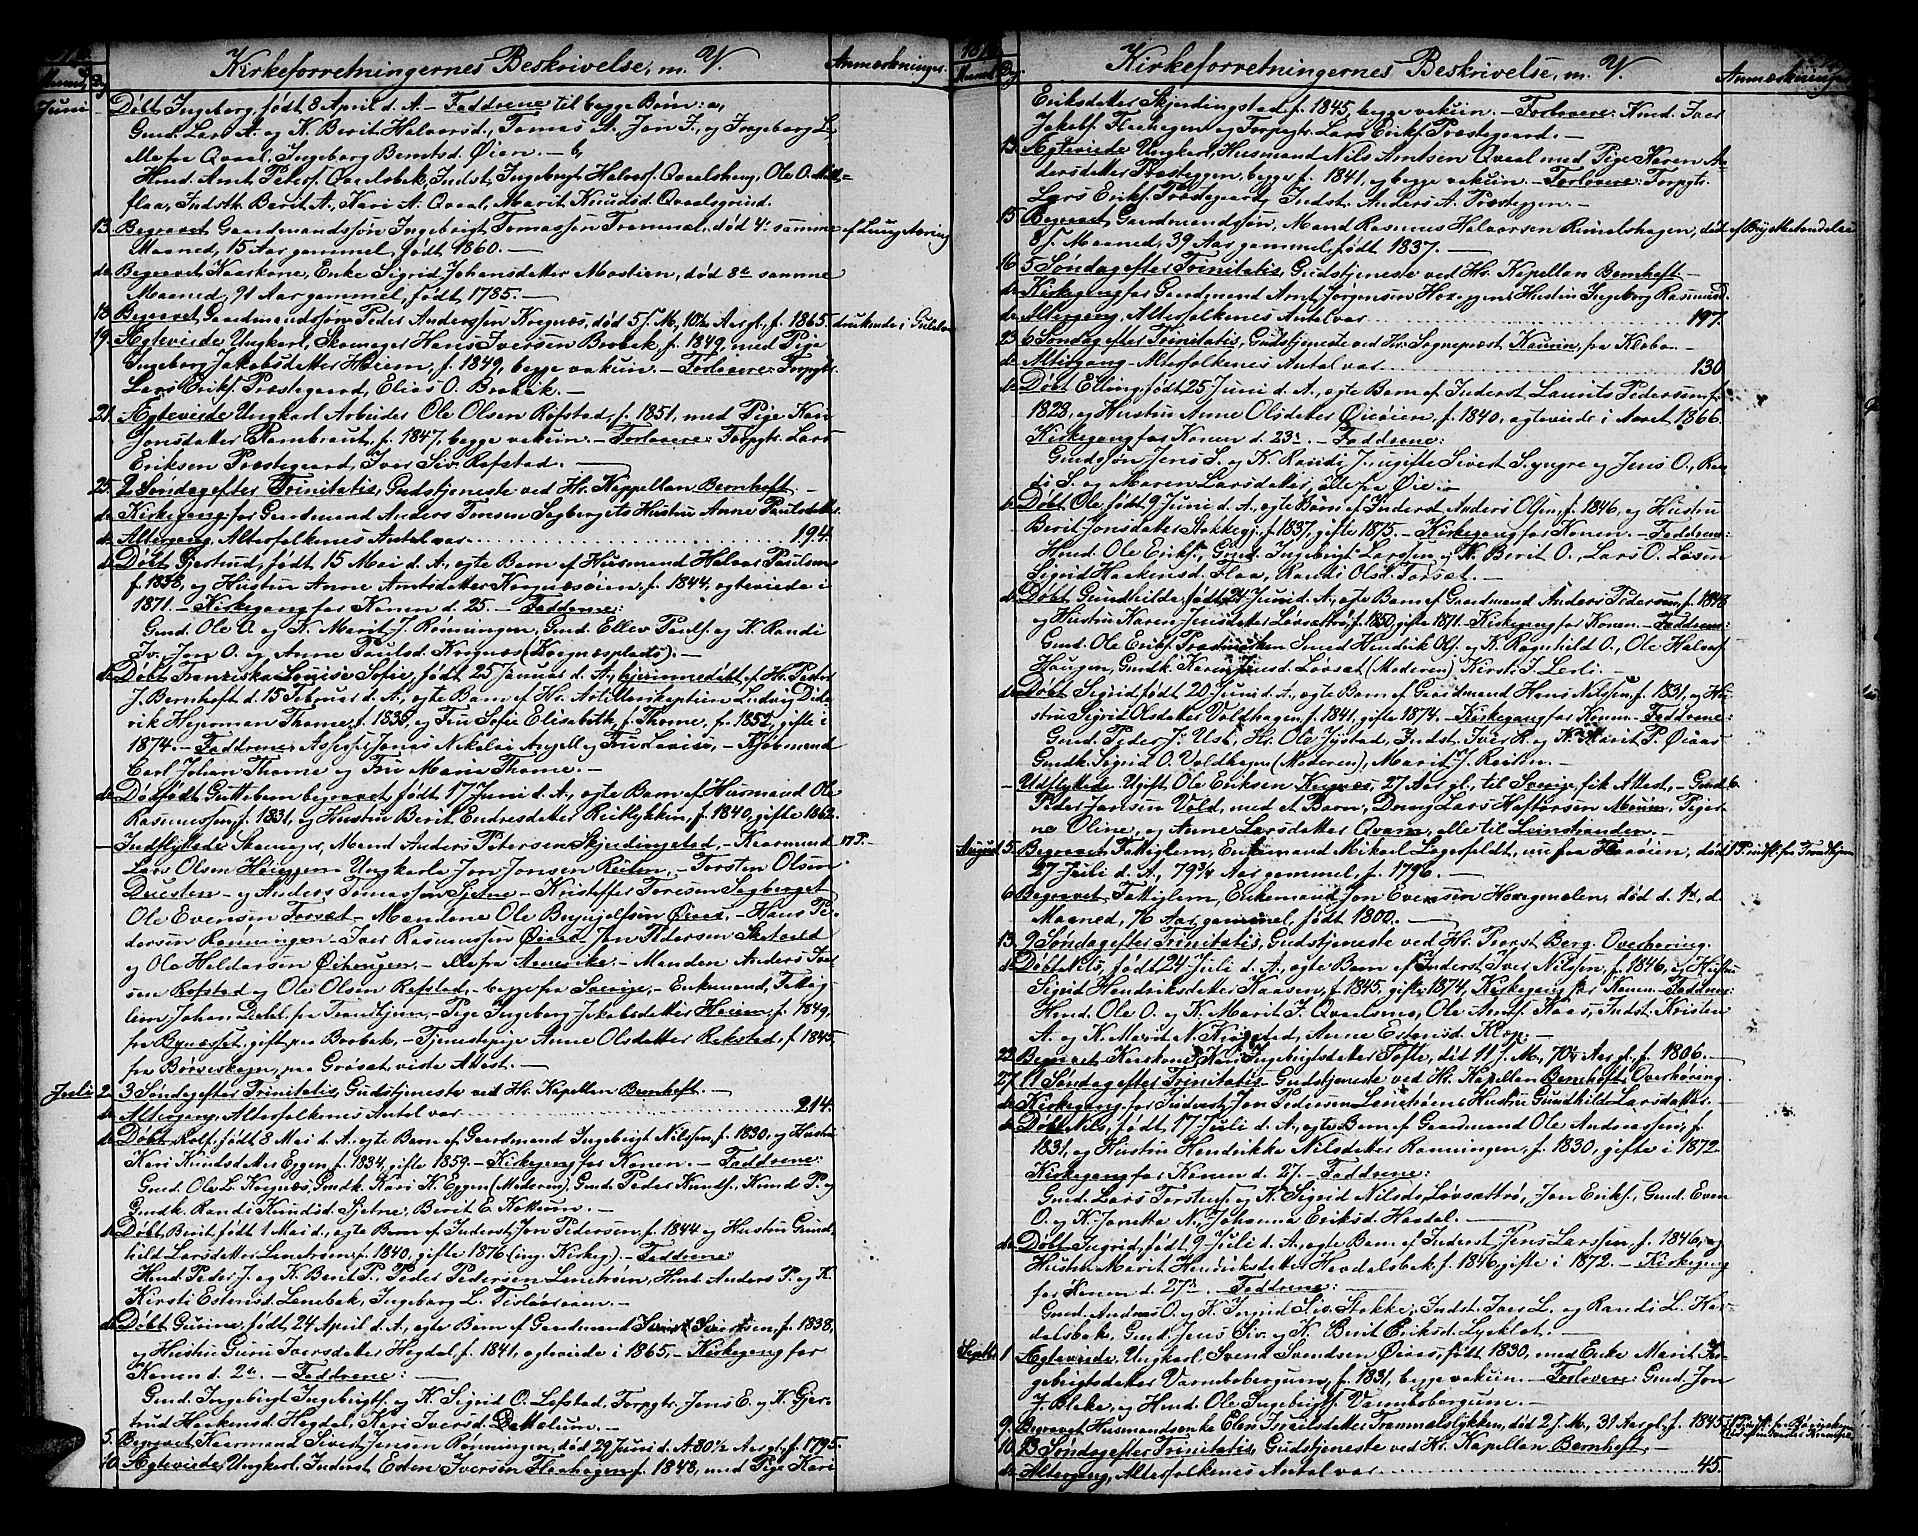 Kirkeforretningernes Beskrivelse, m. V.
Anmærkninger
Juni
Døbt Ingeborg, født 8 April d. A. – Fadderne til begge Børn: a,
Gmd. Lars A. og K. Berit Halvorsd., Tomas A. Jon J., og Ingeborg L.
Alle fra Qvaal, Ingeborg Berntsd. Øien. – b,
Hmd. Arnt Petersf. Qvaalsbek, Indst. Ingebrigt Halvorsf. Qvaalsheng, Ole O.
flaa, Indstk. Berit A., Kari A. Qvaal, Marit Knudsd. Qvaalsgrind.
13. Begravet Gaardmandssøn Ingebrigt Tomassøn Trammel, død 4de samme af Lungetæring
Maaned, 15 Aar gammel, født 1860. –
do Begravet Kaarkone, Enke Sigrid Johansdatter Mostien, død 8de samme
Maaned, 91 Aar gammel, født 1785. –
18 Begravet Gaardmandssøn Peder Anderssen Krognæs, død 5 f. M., 10½ Aar gl., f. 1865. druknede i Gulelven
19. Ægteviede Ungkarl, Skomager Hans Iversen Brobak, f. 1849, med Pige
Ingeborg Jakobsdatter Heiem, f. 1849, begge vakcin. – Forlovere: Forpgtr.
Lars Eriks. Præstegaard, Elias O. Brobak. –
21. Ægteviede Ungkarl Arbeider Ole Olsen Rofstad, f. 1851, med Pige Kari
Jonsdatter Rambraut, f. 1847, begge vakcin. – Forlovere: Forpgtr. Lars
Eriksen Præstegaard, Iver Siv. Rofstad. –
25. 2 Søndag efter Trinitatis, Gudstjeneste ved Hr. Kappellan Bernhoft –
do Kirkegang for Gaardmand Anders Tomsen Sagbergets Hustru Anne Paulsdatter.
do Altergang, Alterfolkenes Antal var 194.
do Døbt Gjertrud, født 15 Mai d. A., ægte Barn af Husmand Halvor Paulsen
f. 1838, og Hustru Anne Arntsdatter Krognæsøien, f. 1844, ægteviede i
1871. – Kirkegang for Konen d. 25. – Fadderne:
Gmd. Ole O. og K. Marit J. Rønningen, Gmd. Ellev Paulsf. og K. Randi
Iv., Jon O. og Anne Paulsd. Krognæs (Krognæsplads). –
do Døbt Franziska Louise Sofie, født 25 Januar d. A., hjemmedøbt af Hr. Pastor
J. Bernhoft d. 15 Februar d. A., ægte Barn af Hr. Artillerikaptein Ludvig Dide-
rik Hejerman Thome, f. 1838 og Fru Sofie Elisabeth, f. Thome, f. 1852, gifte i
1874. – Fadderne: Jonas Nikolai Angell og Fru Lovise, – Kjøbmand
Carl Johan Thome og Fru Marie Thome. –
do Dødfødt Guttebarn begravet, født 17 Juni d. A., ægte Barn af Husmand Ole
Rasmussen, f. 1831, og Hustru Berit Endresdatter Reitlykken, f. 1840, gifte 1862.
– Indflyttede Skomager, Mand Anders Petersen Skjerdingstad, – Kaarmand 17 P. –
Lars Olsen Høieggen – Ungkarle Jon Jonsen Reiten, – Torsten Olsen
Duesten – og Anders Tomassen Sjetne – Kristoffer Toresen Sagberget
Ole Evensen Forsæt – Mændene Ole Brynjelfsen Øiaas, – Hans Pe-
dersen Rønningen – Iver Rasmussen Øiaas, Jon Pedersen Skotvold
og Ole Haldorsen Øihaugen, – Alle fra Amerika – Manden Anders Iver
sen Rofstad og Ole Olsen Rofstad, – begge fra Sverige, – Enkemand, Fattig
lem Johan Dahl fra Trondhjem, – Pige Ingeborg Jakobsdatter Heiem, f. 1849,
fra Bynæsset, gift paa Brobak, – Tjenestepige Anne Olsdatter Rekstad, f 1845,
fra Børseskogn, paa Grøset, viste Attest. –
Juli 2. 3 Søndag efter Trinitatis, Gudstjeneste ved Hr. Kapellan Bernhoft. –
do Altergang, Alterfolkenes Antal var 214.
do Døbt Rolf, født 8 Mai d. A., ægte Barn af Gaardmand Ingebrigt Nilssen, f. 1830, og Hustru
Kari Knudsdatter Eggen, f. 1834, gifte 1859. – Kirkegang for Konen. – Fadderne:
Gmd. Ole L. Krognæs, Gmdk. Kari K. Eggen (Moderen), Gmd. Peder Knudsf., Knud P. og
Gmdk. Randi Knudsd. Sjetne, Berit E. Nokkum. –
do Døbt Berit, født 1 Mai d., ægte Barn af Inderst Jon Pedersen, f. 1844 og Hustru Gund
hild Larsdatter Lenetrøen, f. 1840, gifte 1876 (ing. Kirkeg.) – Fadderne:
Hmd. Peder J. og K. Berit P., Peder Pedersen Lenetrøen, Hmd. Anders P. og K.
Kirsti Estensd. Lenebak, Ingeborg L. –
do Døbt Gurine, født 24 April d. A., ægte Barn af Gaardmand f. 1838,
og Hustru Guru Iversdatter Hegdal, f. 1841, ægteviede i 1865, – Kirkegang for
Konen d. 2de. – Fadderne: –
Gmd. Ingebrigt Ingebrigtsf. og K. Sigrid O. Lefstad, Forpgtr. Jens E. og K. Gjer-
trud Haakensd. Hegdal, Kari Iversd.
5. Begravet Kaarmand Sivert Jensen Rønningen, død 29 Juni d. A. 80½ Aar gl., f. 1795.
10. Ægteviede, Ungkarl, Inderst Esten Iversen Flaahagen, f. 1848, med Pige Kari
Kirkeforretningernes Beskrivelse, m. V.
Anmærkninger
Eriksdatter Skjerdingstad, f. 1845, begge vakcin. – Forlovere: Kmd. Iver
Jakobf. Flaahagen og Forpgtr. Lars Eriks. Præstegaard. –
13. Ægteviede Ungkarl, Husmand Nils Arntsen Qvaal med Pige Karen An
dersdatter Præsteggen, begge f. 1841, og begge vakcin. – Forlovere: Forpgtr.
Lars Eriks. Præstegaard, Indst. Anders A. Præsteggen. –
15 Begravet Gaardmandssøn, Mand Rasmus Halvorsen Rimolshagen, død af Brystbetændelse
8 f. Maaned, 39 Aar gammel, født 1837. –
16 5 Søndag efter Trinitatis, Gudstjeneste ved Hr. Kapellan Bernhoft –
do Kirkegang for Gaardmand Arnt Jørgensen Hoxeggens Hustru Ingeborg Rasmusd.
do Altergang, Alterfolkenes Antal var 197.
23 6 Søndag efter Trinitatis, Gudstjeneste ved Hr. Sognepræst Kaurin, fra Klæbo –
do Altergang – Alterfolkenes Antal var 130
do Døbt Elling, født 25 Juni d. A., ægte Barn af Inderst Laurits Pedersen, f.
1823, og Hustru Anne Olsdatter Øieøien, f. 1840, ægteviede i Aaret 1866.
Kirkegang for Konen d. 23de. – Fadderne:
Gmdssøn Jens S. og K. Randi J., ugifte Sivert S. yngre og Jens O., Ran
di S. og Maren Larsdatter, alle fra Øie. –
do Døbt Ole, født 9 Juni d. A., ægte Barn af Inderst Anders Olsen, f. 1846, og Hustru
Berit Jonsdatter Stokke, f. 1837, gifte 1875. – Kirkegang for Konen. – Fadderne:
Hmd. Ole Eriks., Gmd. Ingebrigt Larssen og K. Berit O., Lars O. Losen
Sigrid Haakensd. Flaa, Randi Olsd. Forsæt. –
do Døbt Gundhilde, født 24 Juni d. A., ægte Barn af Gaardmand Anders Pedersen, f. 1848
og Hustru Karen Jensdatter Løvsættrø, f. 1850, gifte 1871. – Kirkegang for Konen. – Fadderne:
Gmd. Ole Eriks. Smed Hendrik Olsf. og K. Ragnhild O., Ole Halvorsf
Haugen, Gmdk. Karen Jensd. Løvsæt (Moderen), Kirst. J. Lerli. –
do Døbt Sigrid, født 20 Juni d. A., ægte Barn af Gaardmand Hans Nilssen, f. 1831, og Hu-
stru Sigrid Olsdatter Voldhagen, f. 1841, gifte 1874. – Kirkegang for Konen. – Fadderne:
Gmd. Peder J. Ust, Hr. Ole Jystad, Indst. Iver R. og K. Marit P. Øiaas
Gmdk. Sigrid O. Voldhagen (Moderen), Marit J. Reiten. –
– Udflyttede Ugift Ole Eriksen Krognæs, 27 Aar gl., til Sverige, fik Attest, – Gmd. 6.
Peder Jonsen Vold, med et Barn, Dreng Lars Haftorsen Moum, Piger-
ne Oline, og Anne Larsdatter Qvam, alle til Leinstranden. –
August 5. Begravet Fattiglem, Enkemand Mikael Løgefoldt, nu fra Haaøien, død
27 Juli d. A., 79¾ Aar gammel, f. 1796. –
6. Begravet Fattiglem, Enkemand Jon Evensen Hoxegmælen, død d. 1te, d.
Maaned, 76 Aar gammel, født 1800. –
13. 9 Søndag efter Trinitatis, Gudstjeneste ved Hr. Provst Berg. Overhøring.
do Døbt Nils, født 24 Juli d. A., ægte Barn af Inderst Iver Nilssen, f. 1846, og Hustru
Sigrid Hendriksdatter Kaasen, f. 1845, gifte 1874, Kirkegang for Konen – Fadderne:
Hmd. Ole O. og K. Marit J. Qvaalsmo, Ole Arntsf. Kaas, Indst. Kristen
A. og K. Marit N. Anne Estensd. Klop. –
22. Begravet Kaarkone Kari Ingebrigtsdatter Tofte, død 11 f. M., 70¼ Aar gl., f. 1806. –
27. 11 Søndag efter Trinitatis – Gudstjeneste ved Hr. Kapellan Bernhoft, Overhøring.
do Kirkegang for Inderst Jon Pedersen Lenetrøens Hustru Gundhild Larsdatter.
do Døbt Nils, født 17 Juli d. A., ægte Barn af Gaardmand Ole Andreassen, f.
1831, og Hustru Hendrikke Nilsdatter Rønningen, f. 1830, gifte i 1872.
Kirkegang for Konen d. 27. – Fadderne:
Gmd. Lars Torstensf. og K. Sigrid Nilsd. Løvsættrø, Jon Eriksf., Gmd. Even
O. og K. Jonetta N., Johanna Eriksd. Hasdal. –
do Døbt Ingrid, født 9 Juli d. A., ægte Barn af Inderst Jens Larssen, f. 1846, og
Hustru Marit Hendriksdatter Havdalsbak f. 1846, gifte i 1872. – Kirkegang
for Konen d. 27de. – Fadderne: –
Gmd. Andreas O. og K. Ingrid Siv. Stokke, Indst. Iver L. og Randi L. Hav-
dalsbak, Gmd. Jens Siv. og K. Berit Eriksd. Lyeklet. –
Septbr. 1. Ægteviede, Ungkarl, Svend Svendsen Øiaas, født 1830, med Enke Marit In-
gebrigtsdatter Vambobergum, f. 1831, begge vakcin. – Forlovere: Gmd. Jon
J. Bleke, og Hmd. Ole Ingebrigtf. Vambobergum. –
9. Begravet Husmandsenke Elen Israelsdatter Trammelslykken, død 2 f. M., 31 Aar gl., f. 1845.
10. 13 Søndag efter Trinitatis, Gudstjeneste ved Hr. Kapellan Bernhoft. –
do Altergang, Alterfolkenes Antal var 45.